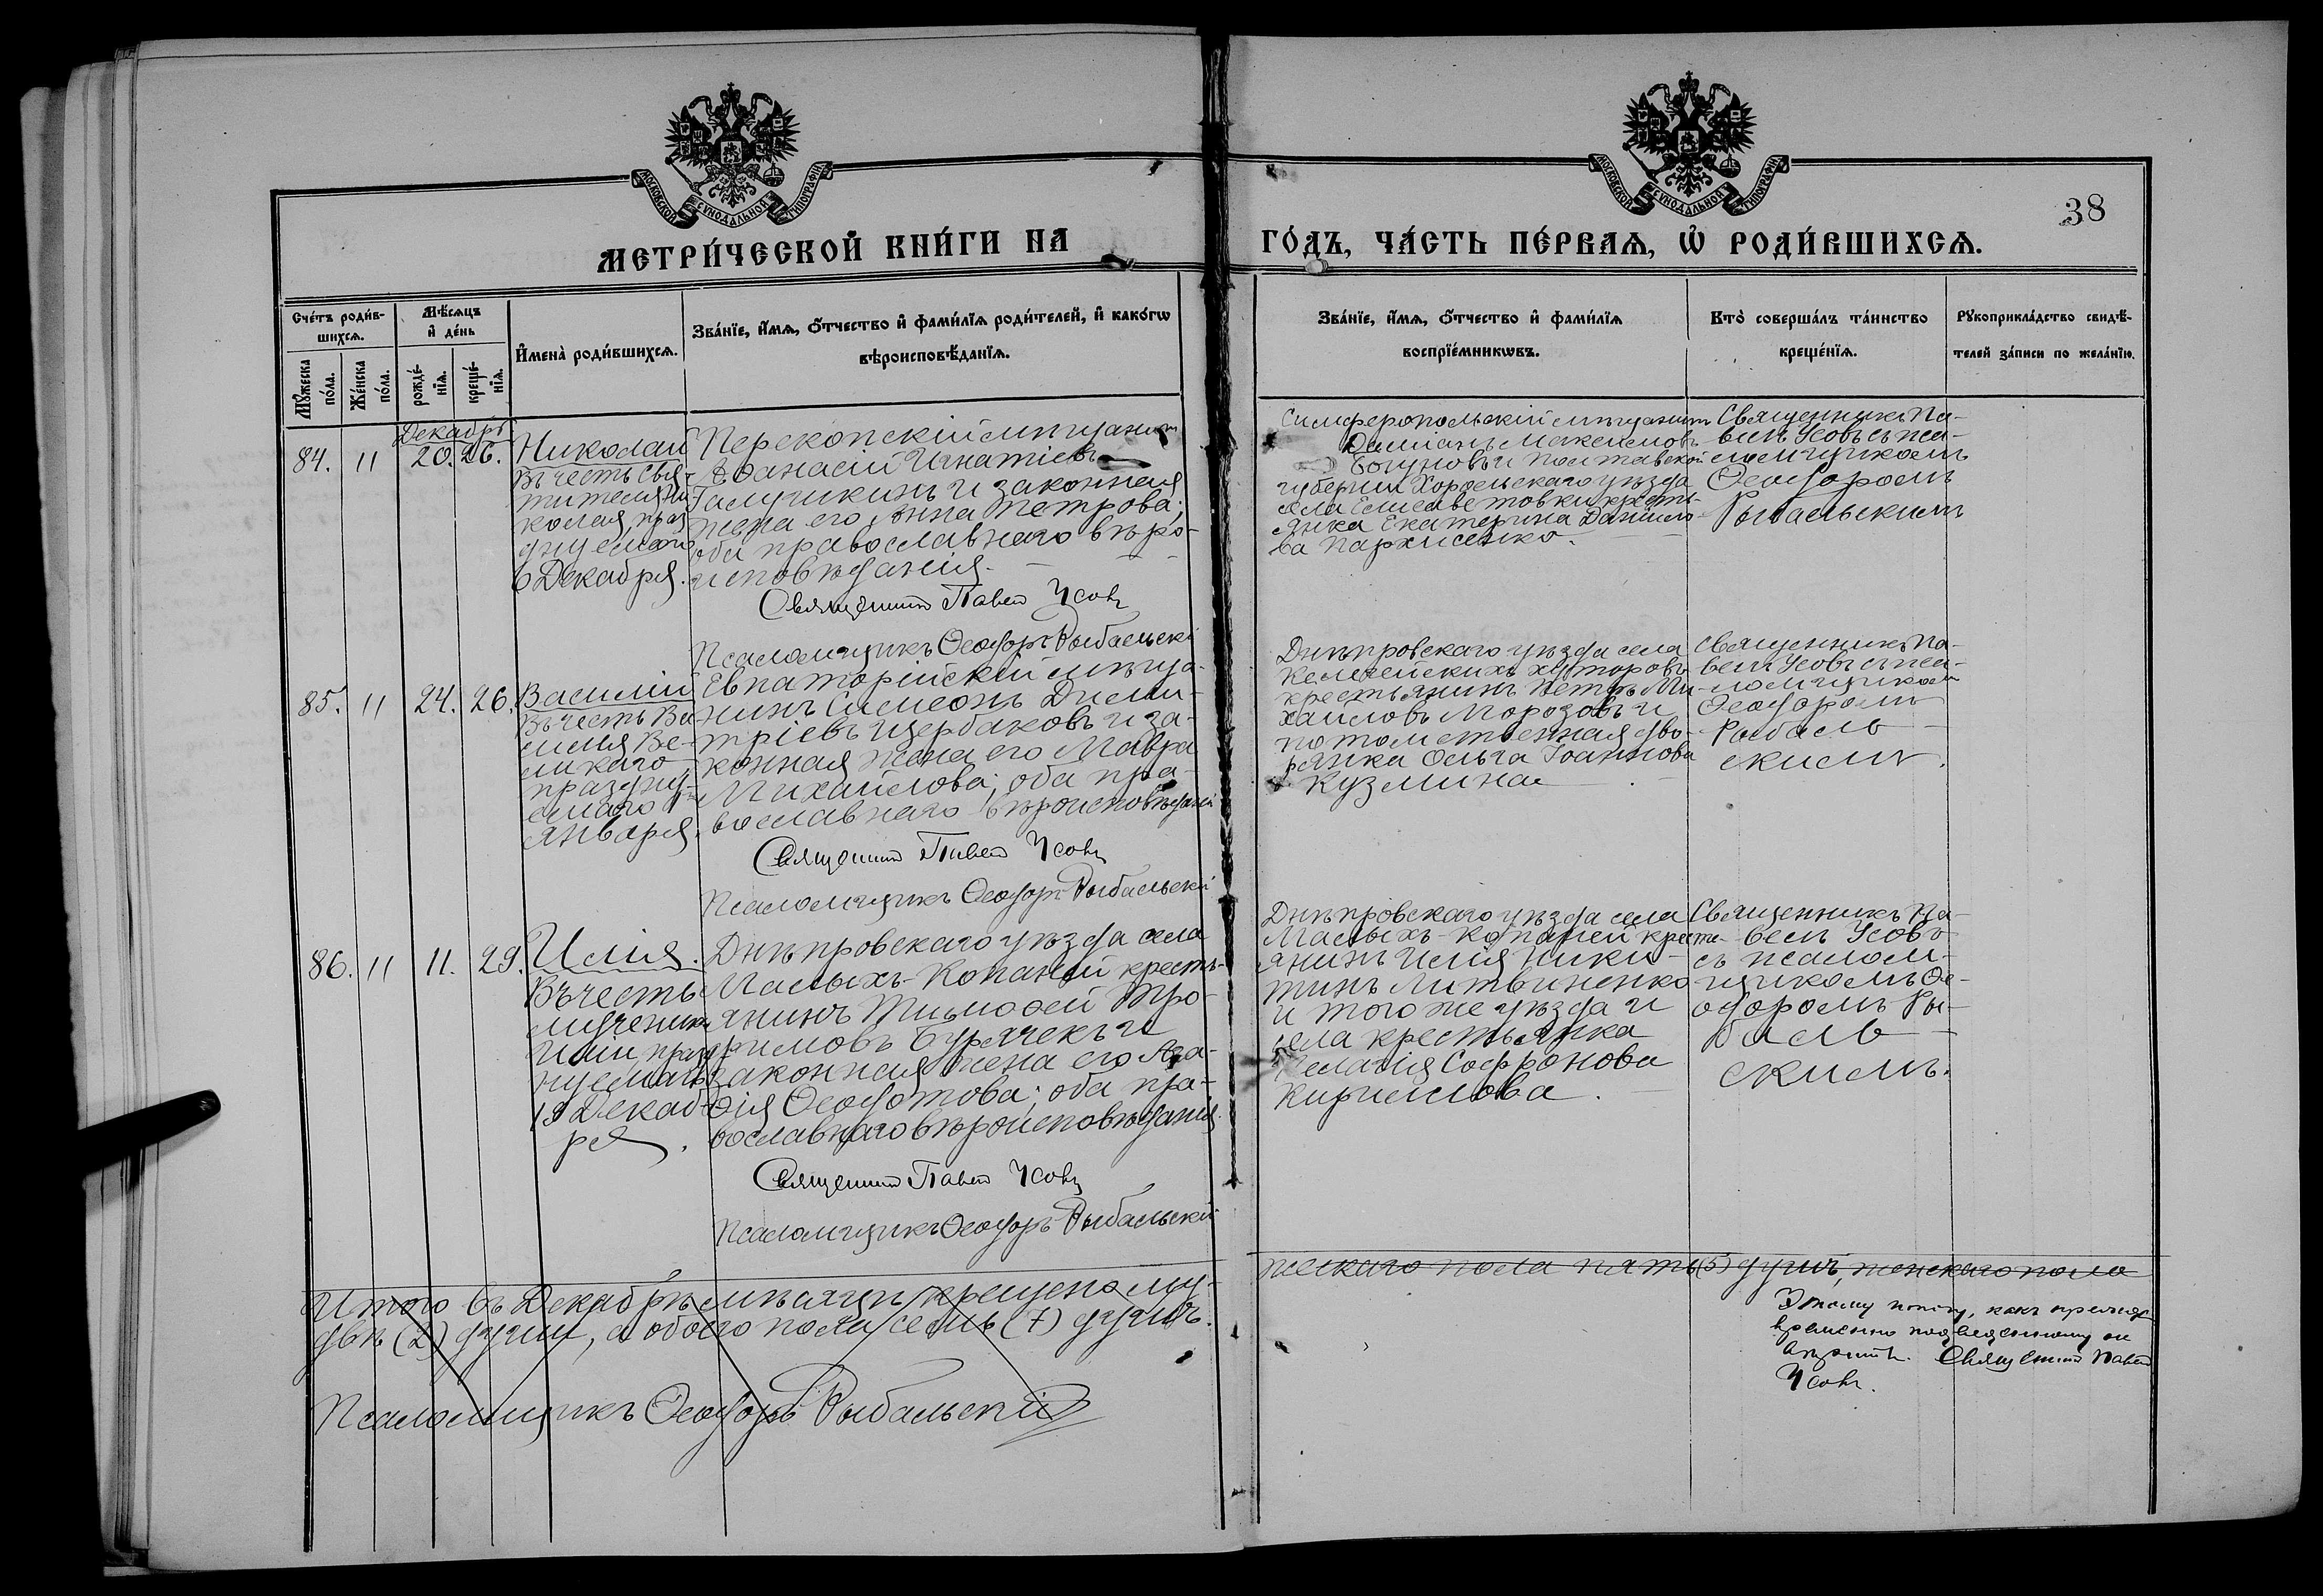 МОСКОВСКОЙ СУНОДАЛЬНОЙ ТИПОГРАФІИ
МОСКОВСКОЙ СУНОДАЛЬНОЙ ТИПОГРАФІИ
38
МЕТРИ́ЧЕСКОЙ КНИ́ГИ НА
ГО́ДЪ, ЧА́СТЬ ПЕ́РВАѦ, Ѡ РОДИ́ВШИХСѦ.
Сче́тъ роди́в-
шихсѧ.
Мꙋжеска
по́ла.
Же́нска
по́ла.
Мѣ́сѧцъ
и҆ де́нь
рожде́-
нїѧ.
креще́-
нїѧ.
И҆мена̀ роди́вшихсѧ.
Зва́нїе, и҆́мѧ, ѻ҆́тчество и҆ фами́лїѧ роди́телей, и҆ како́гѡ
вѣроисповѣ́данїѧ.
Зва́нїе, и҆́мѧ, ѻ҆́тчество и҆ фами́лїѧ
воспрїе́мникѡвъ.
Кто̀ соверша́лъ та́инство
креще́нїѧ.
Рꙋкоприкла́дство свидѣ́-
телей за́писи по жела́нїю.
Декабрь
84. 11 20. 26.
Николай
Въ честь Свя-
тителя Ни-
колая, праз
днуемаго
6 Декабря.
Перекопскій мѣщанинъ
Аѳанасій Игнатіевъ
Галушкинъ и законная
жена его Анна Петрова;
оба православнаго вѣро-
исповѣданія.
Священникъ Павелъ Усовъ
Псаломщикъ Ѳеодоръ Рыбальскій
Симферопольскій мѣщанинъ
Даміанъ Максимовъ
Богуновъ и Полтавской
губерніи Хорольскаго уѣзда
села Елисаветовки кресть-
янка Екатерина Данило-
ва Пархоменко.
Священникъ Па-
велъ Усовъ съ пса-
ломщикомъ
Ѳеодоромъ
Рыбальскимъ
85. 11 24. 26.
Василій
Въ честь Ва
силія Ве-
ликаго
праздну-
емаго 1
Января.
Евпаторійскій мѣща-
нинъ Симеонъ Дими-
тріевъ Щербаковъ и за-
конная жена его Мавра
Михайлова; оба пра-
вославнаго вѣроисповѣданія
Священникъ Павелъ Усовъ
Псаломщикъ Ѳеодоръ Рыбальскій
Днѣпровскаго уѣзда села
Келегейскихъ хуторовъ
крестьянинъ Петръ Ми-
хайловъ Морозовъ и
потомственная дво-
рянка Ольга Іоаннова
Кузмина
Священникъ Па-
велъ Усовъ съ пса-
ломщикомъ
Ѳеодоромъ
Рыбаль-
скимъ.
86. 11 11. 29.
Илія.
Въ честь
мученика
Иліи, празд-
нуемаго
19 Декаб-
ря.
Днѣпровскаго уѣзда села
Малыхъ-Копаней кресть-
янинъ Тимоѳей Тро-
фимовъ Бурячекъ и
законная жена его Ага-
ѳія Ѳеодотова; оба пра-
вославнаго вѣроисповѣданія.
Священникъ Павелъ Усовъ
Псаломщикъ Ѳеодоръ Рыбальскій
Днѣпровскаго уѣзда села
Малыхъ-Копаней кресть-
янинъ Илія Ники-
тинъ Литвиненко
и того же уѣзда и
села крестьянка
Пелагія Софронова
Кириллова.
Священникъ Па-
велъ Усовъ
съ псалом-
щикомъ Ѳе-
одоромъ Ры-
баль-
скимъ.
Итого въ Декабрѣ мѣсяцѣ крещено му-
жескаго пола пять (5) душъ, женскаго пола
двѣ (2) души, а обоего пола семь (7) душъ.
Псаломщикъ Ѳеодоръ Рыбальскій
Этому итогу, какъ прежде
временно подведенному не
вѣрить. Священникъ Павелъ
Усовъ.